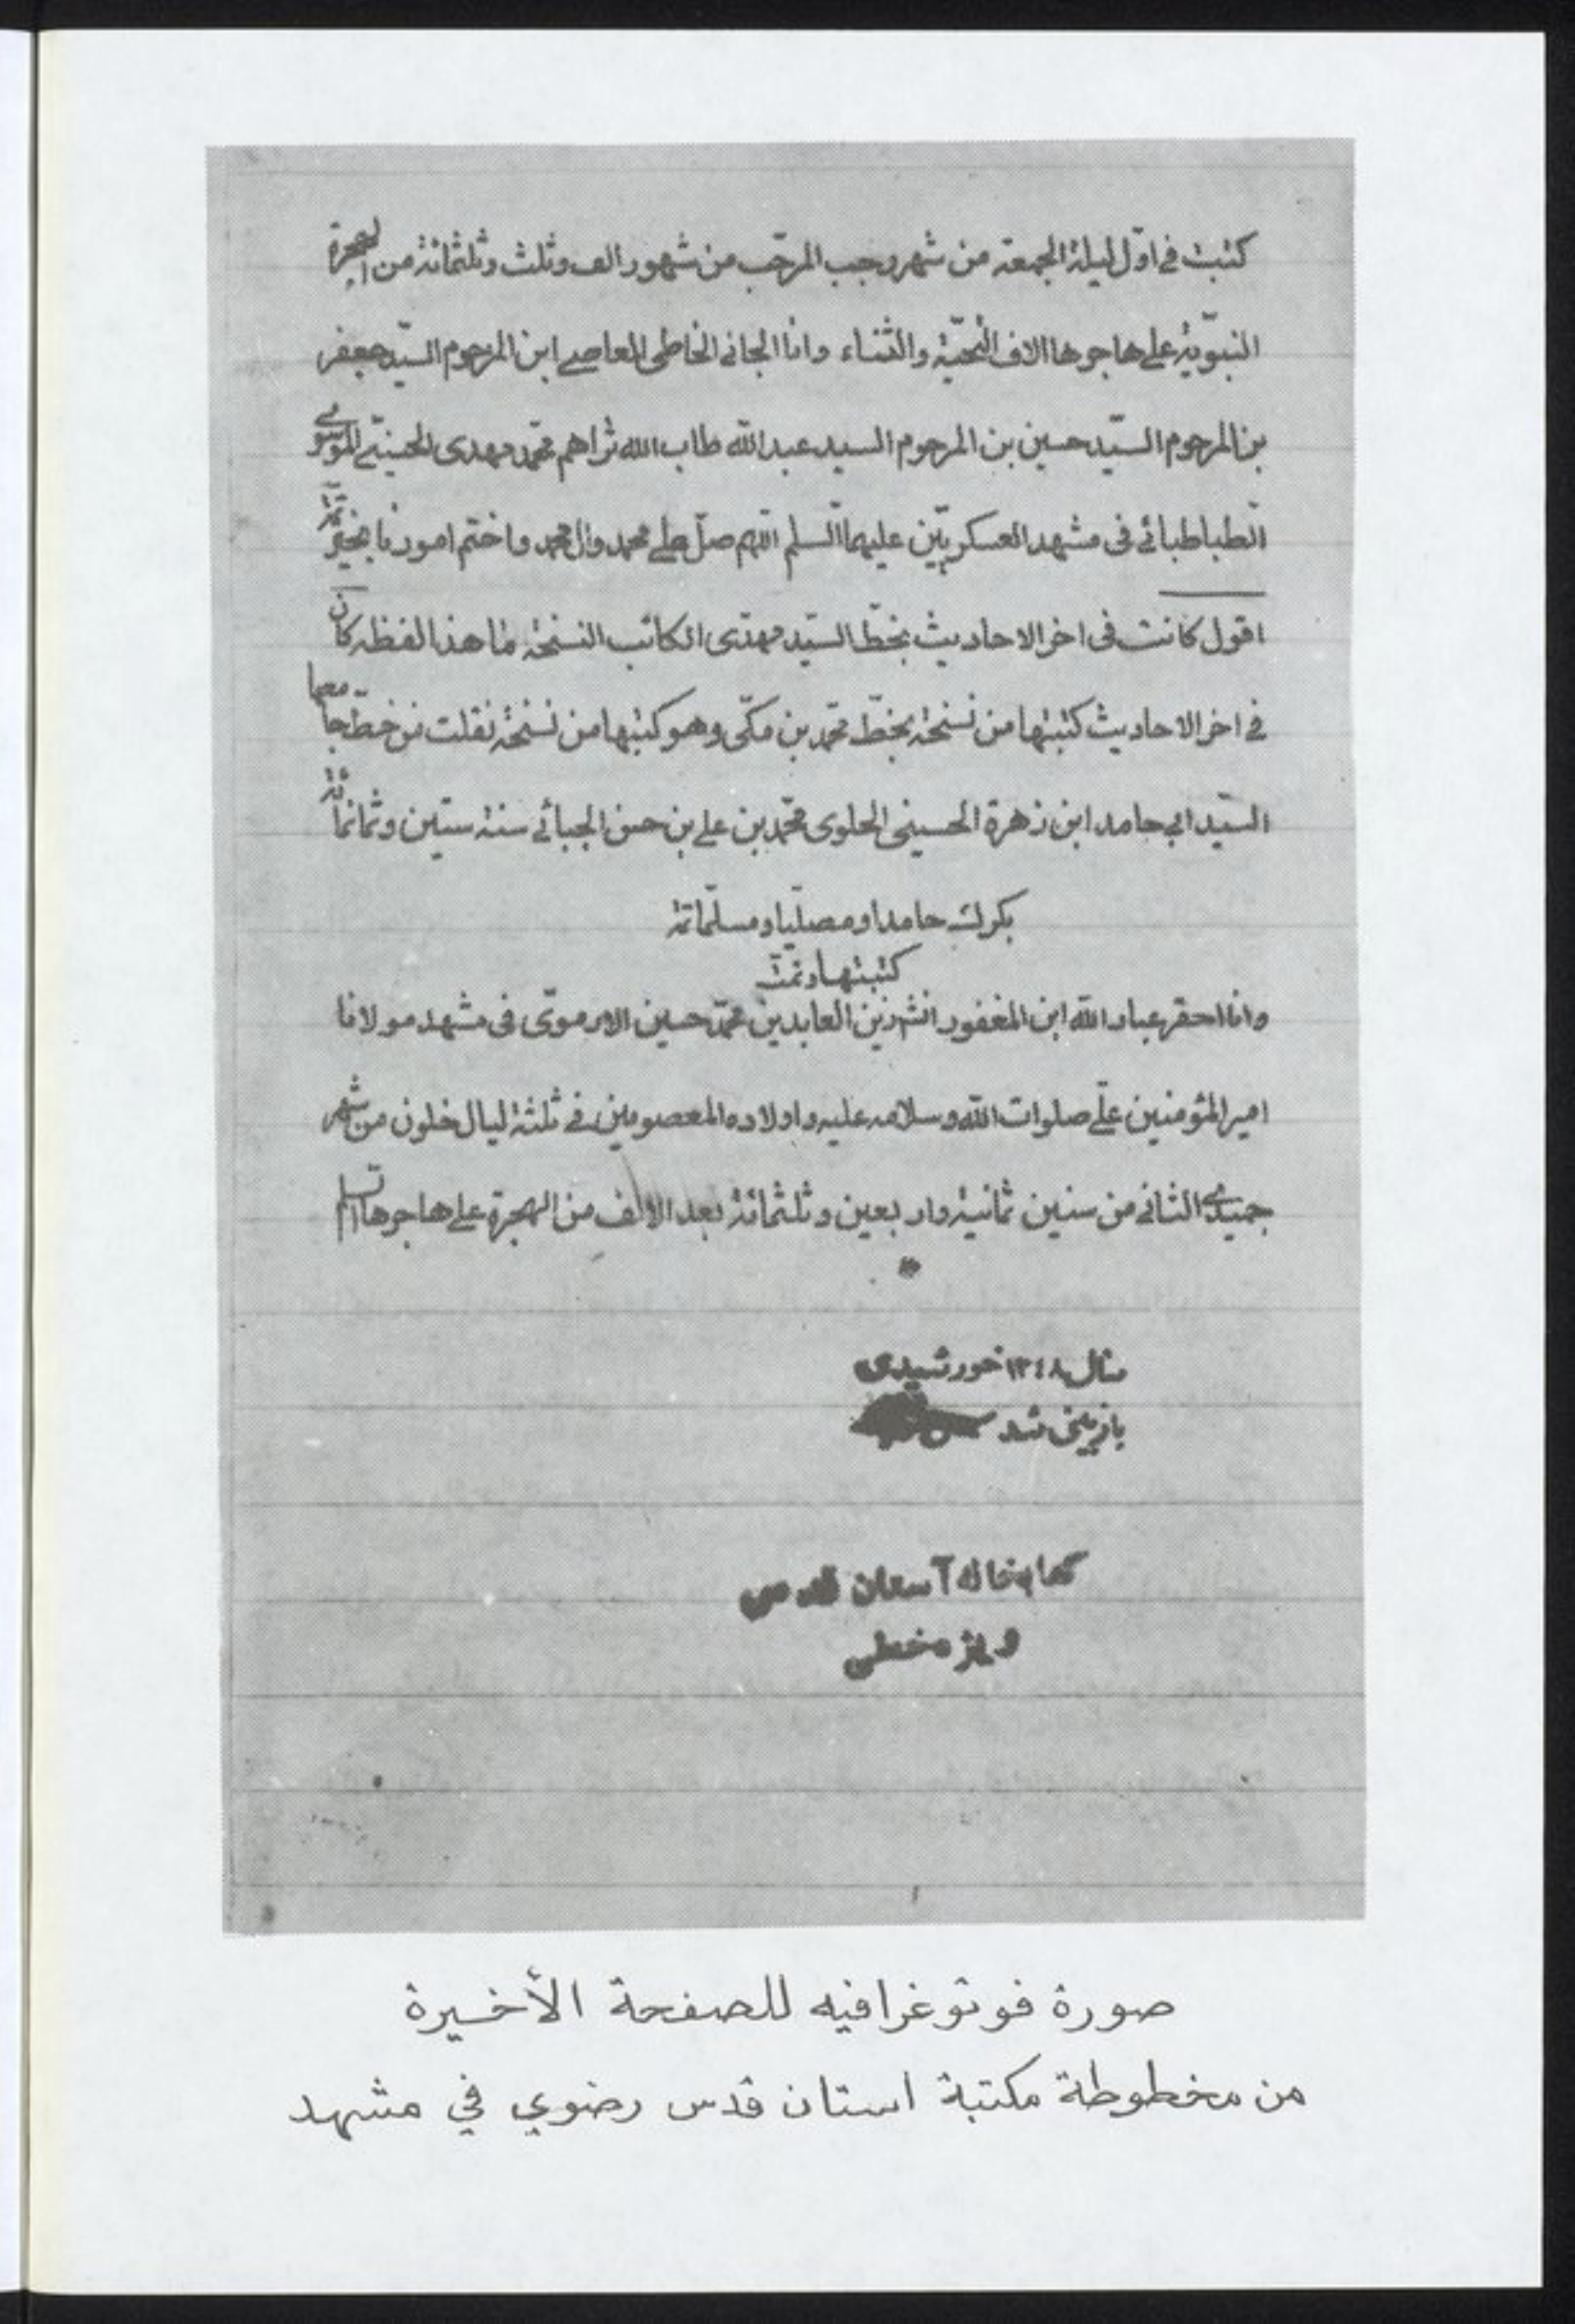 كتبت في اوّل ليلة الجمعة من شهر رجب المرجّب من شهور الف وثلث وثلثمائة من الهجرة
النبويّة على هاجرها الاف التحيّة والثناء وانا الجانى الخاطى العاصے ابن المرحوم السيّد جعفر
بن المرحوم السيّد حسين بن المرحوم السيد عبدالله طاب الله ثراهم محمّد مهدى الحسينے الموسوي
الطباطبائے فى مشهد العسكريّين عليهما السلم اللهم صلّ على محمد وال محمد واختم امورنا بخير
اقول كانت فى اخر الاحاديث بخطّ السيّد مهدى الكاتب النسخة ما هذا لفظه كان
فے اخر الاحاديث كتبتها من نسخة بخطّ محمّد بن مكّى وهو كتبها من نسخة نقلت من خطّ جامعها
السيّد ابى حامد ابن زهرة الحسينى الحلوى محمّد بن على بن حسن الجبائے سنة ستّين وثمانمائة
بكرك حامدا ومصلّيا ومسلّما تمّة
كتبتها وتمّت
وانا احقر عباد الله ابن المغفور زين العابدين محمّد حسين الارموّى فى مشهد مولانا
امير المؤمنين علىّ صلوات الله وسلامه عليه واولاده المعصومين فے ثلثة ليال خلون من شهر
جميدى الثانى من سنين ثمانية واربعين وثلثمائة بعد الالف من الهجرة على هاجرها السلم
سال ۱۳۴۸ خورشیدی
بازبینی شد
کتابخانه آستان قدس
ویژه خطی
صورة فوتوغرافيه للصفحة الأخيرة
من مخطوطة مكتبة استان قدس رضوي في مشهد